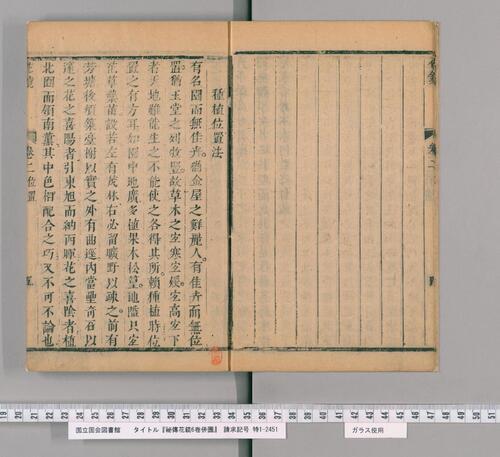 種植位置法
有名園而無佳卉。猶金屋之鮮麗人。有佳卉而無位
置。猶玉堂之列牧豎。故草木之宜寒宜煖。宜高宜下
者。天地雖能生之。不能使之各得其所。賴種植時位
置之有方耳。如園中地廣。多植果木松篁。地隘只宜
花草藥苗。設若左有茂林。右必留曠野以疎之。前有
芳塘。後須築臺榭以實之。外有曲逕。內當壘奇石以
邃之。花之喜陽者。引東旭而納西暉。花之喜陰者。植
北囿而領南薰。其中色相配合之巧。又不可不論也
卷二位置
五
国立国会図書館 タイトル『秘傳花鏡6巻併圖』 請求記号 特1-2451 ガラス使用
19 20 21 22 23 24 25 26 27 28 29 30 31 32 33 34 35 36 37 38 39 40 41 42 43 44 45 46 47 48 49 50 51